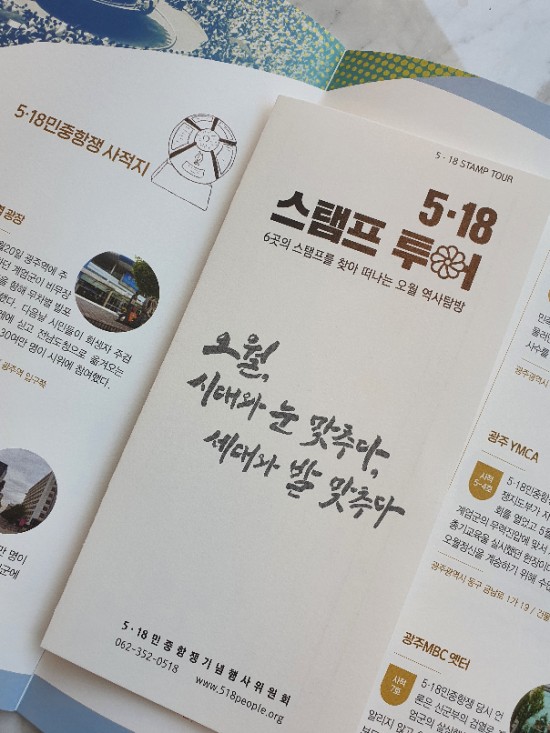 5·18민중항쟁 사적지
광장
20일 광주역에 주
하던 계엄군이 비무장
을 향해 무차별 발포
했다. 다음날 시민들이 희생자 주검
에 싣고 전남도청으로 옮겨오는
30여만 명이 시위에 참여했다.
광주역 입구쪽
만 명이
계엄군에
5·18 STAMP TOUR
5·18
스탬프 투어
6곳의 스탬프를 찾아 떠나는 오월 역사탐방
오월,
시대와 눈 맞추다,
세대와 발 맞추다
5·18민중항쟁기념행사위원회
062-352-0518
www.518people.org
민족
올려진
사수를
광주광역시
광주 YMCA
사적
5-4호
5·18민중항
쟁지도부가 자
회를 열었고 5월
계엄군의 무력진압에 맞서
총기교육을 실시했던 현장이다
오월정신을 계승하기 위해 수
광주광역시 동구 금남로 1가 19 / 건물
광주MBC 옛터
사적
7호
5·18민중항쟁 당시 언
론은 신군부의 검열로
엄군의 살상
알리지 않고